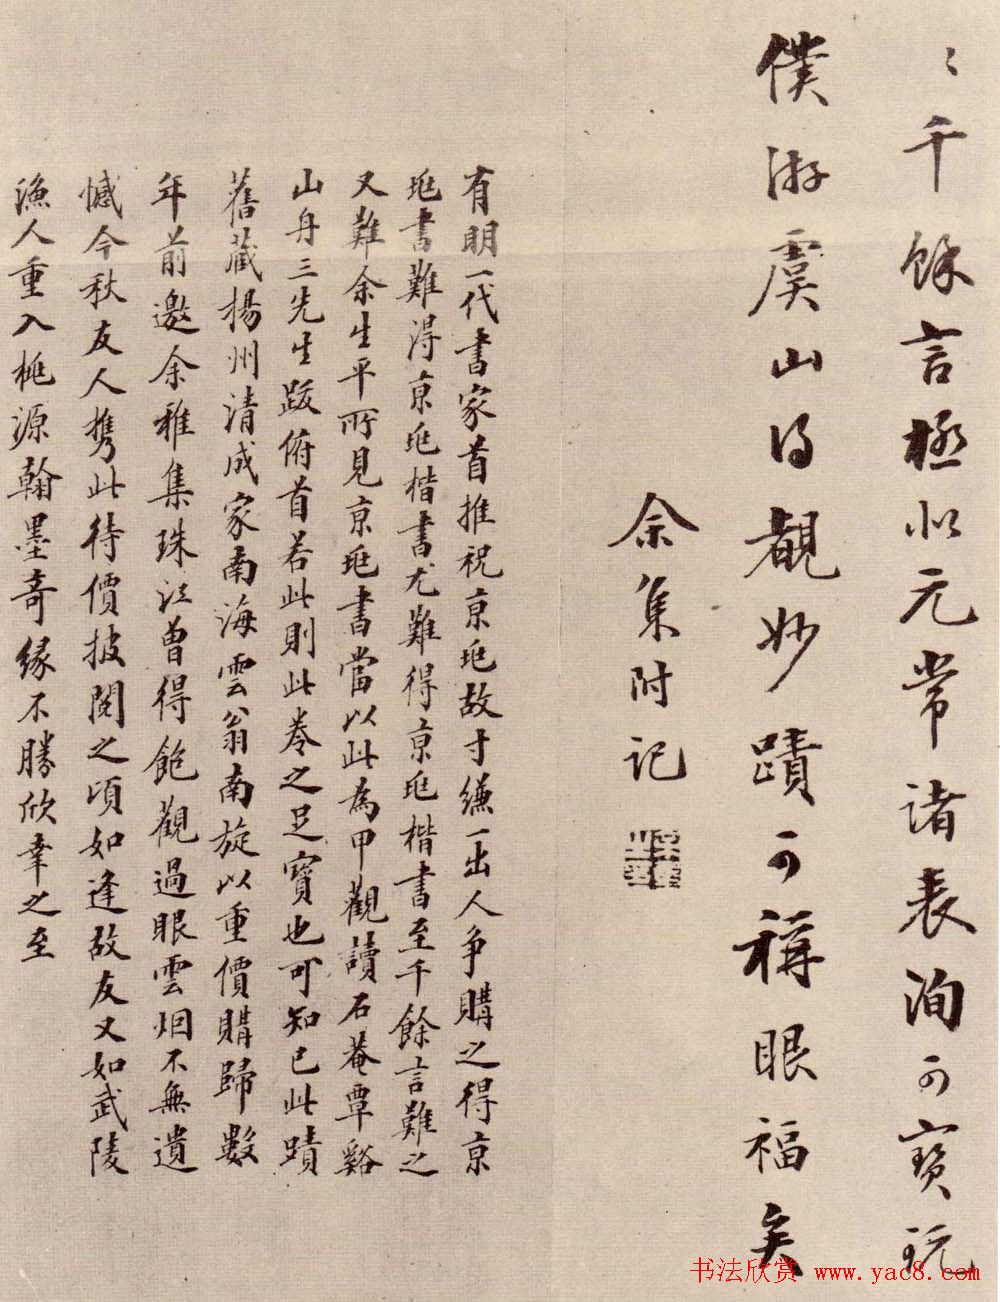 〻千餘言極似元常諸表洵可寶玩
僕游虞山得覩妙蹟可稱眼福矣
余集附記
有明一代書家首推祝京兆故寸縑一出人争購之得京
兆書難得京兆楷書尤難得京兆楷書至千餘言難之
又難余生平所見京兆書當以此為甲觀讀石菴覃谿
山舟三先生跋俯首若此則此卷之足寶也可知已此蹟
舊藏揚州清成家南海雲翁南旋以重價購歸數
年前邀余雅集珠江曾得飽觀過眼雲烟不無遺
憾今秋友人携此待價披閱之頃如逢故友又如武陵
漁人重入桃源翰墨奇緣不勝欣幸之至
书法欣赏 www.yac8.com